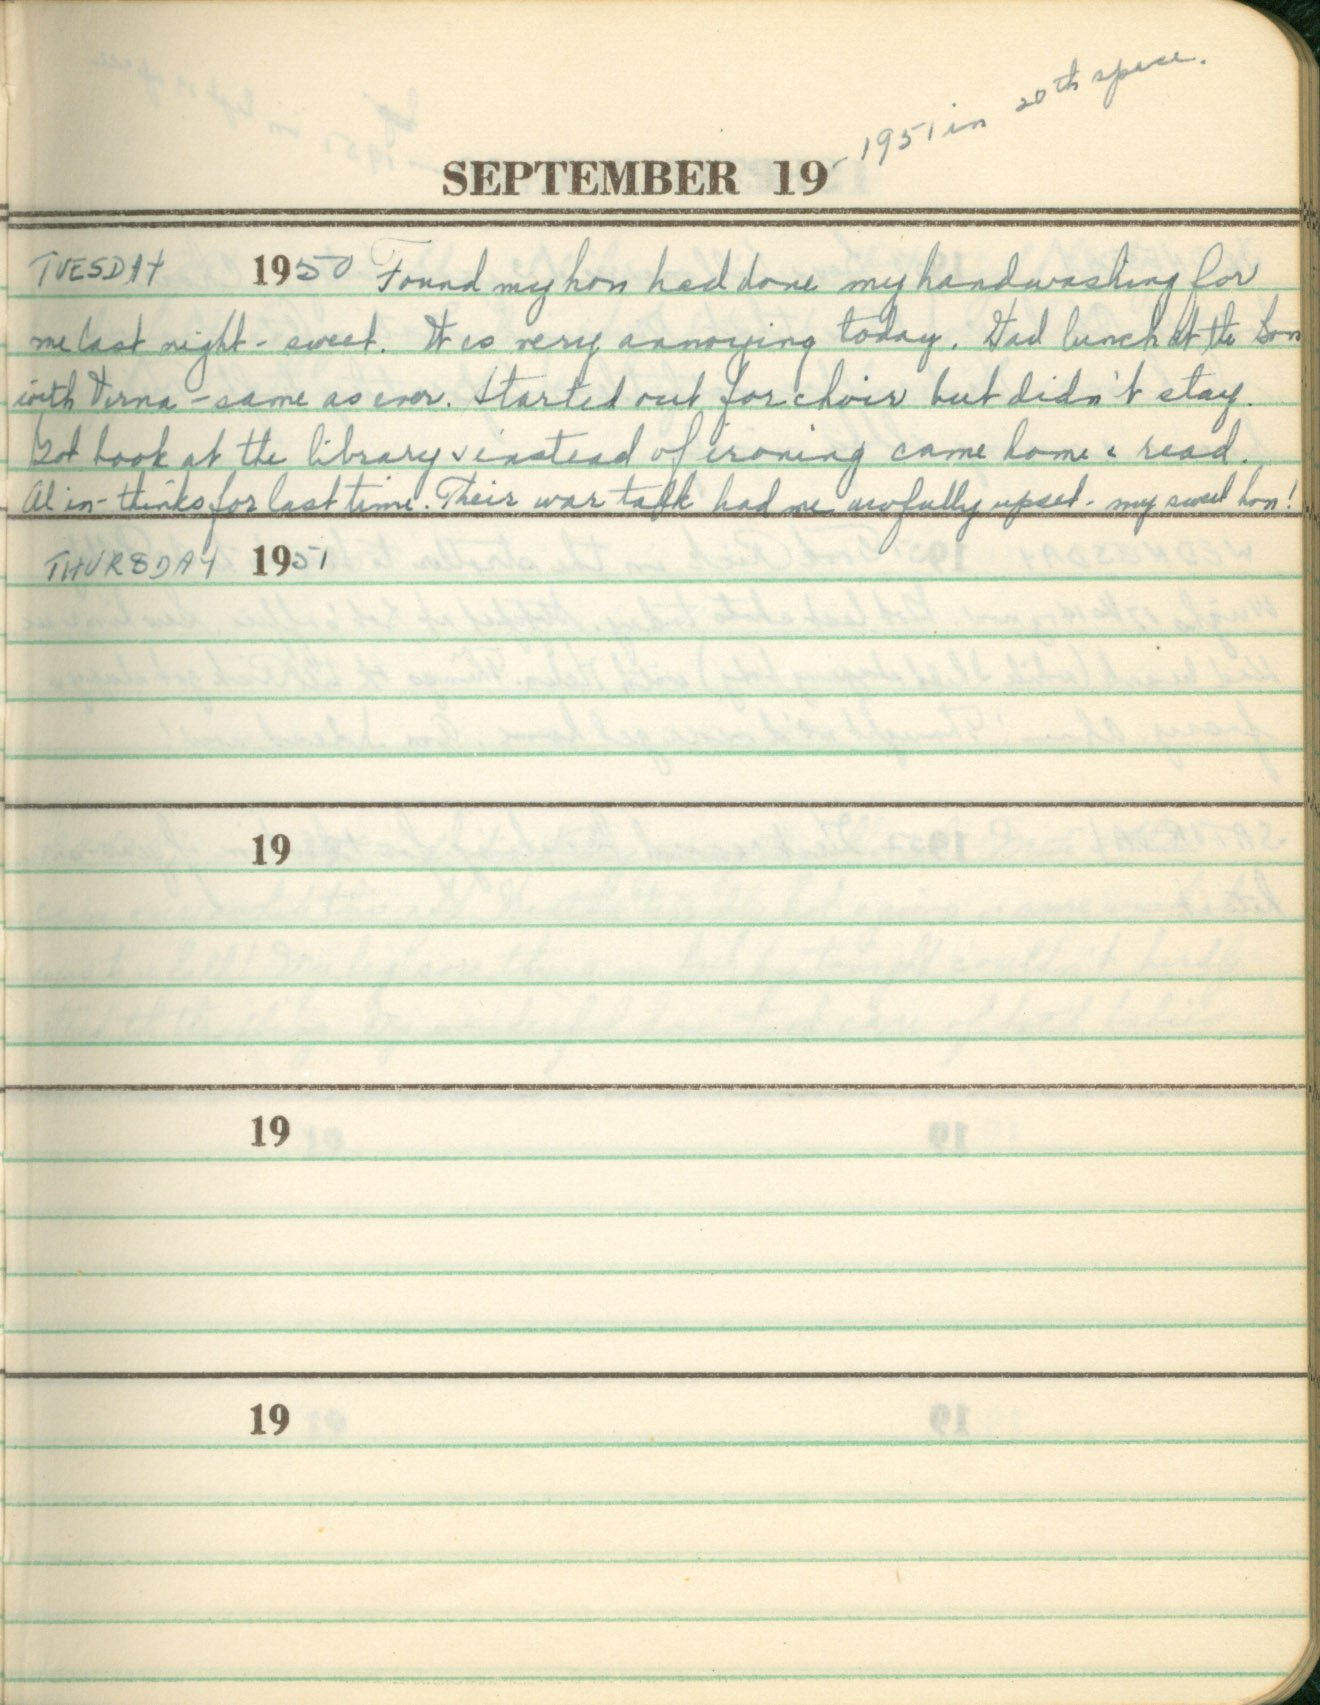 - 1951 in 20th space.
SEPTEMBER 19
TUESDAY 1950 Found my hon had done my handwashing for
me last night - sweet. It is very annoying today. Had lunch at the Bon
with Verna - same as ever. Started out for choir but didn't stay.
Got book at the library & instead of ironing came home & read.
Al in - thinks for last time. Their war talk had me awfully upset - my sweet hon!
THURSDAY 1951
19
19
19